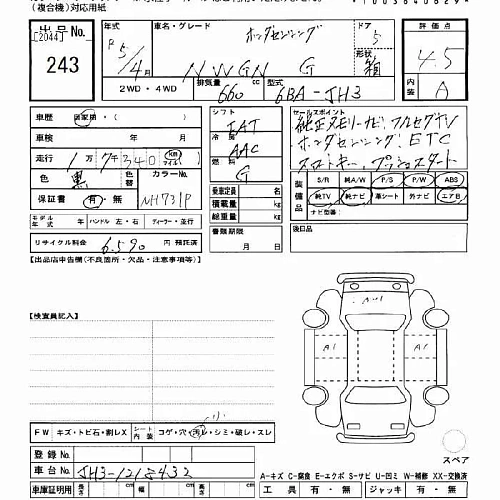 (複合機)対応用紙
出品No. 年式 車名・グレード ドア 評価点
[2044] R5/4月 ホンダセンシング 5 4.5
243 N WGN G 形状 箱 内装 A
2WD・4WD 排気量 660 cc 型式 6BA-JH3
車歴 自家用・( ) シフト セールスポイント
IAT 純正メモリーナビ フルセグTV
車検 年 月 冷房 ホンダセンシング ETC
走行 1万7千340 km マイル AAC スマートキー プッシュスタート
色 黒 色替 カラーNo. 燃料 G 装備品 S/R 純A/W P/S P/W ABS
保証書 有・無 NH731P 乗車定員 名 純TV 純ナビ 革シート 外ナビ エアB
積載量 kg ナビ型番( )
モデル年式 年 ハンドル 左・右 ディーラー・並行 総重量 kg
リサイクル料金 6,590 円 預託済 書類期限 月 日 後日品
【出品店申告欄(不良箇所・欠品・注意事項等)】
【検査員記入】
A1 A1
FW キズ・トビ石・割レX シート内装 コゲ・穴・汚レ・シミ・破レ・スレ
登録No. スペア
車台No. JH3-1215432
A-キズ C-腐食 E-エクボ S-サビ U-凹ミ W-補修 XX-交換済
車庫証明用 年 月 日 工具 有・無 ジャッキ 有・無